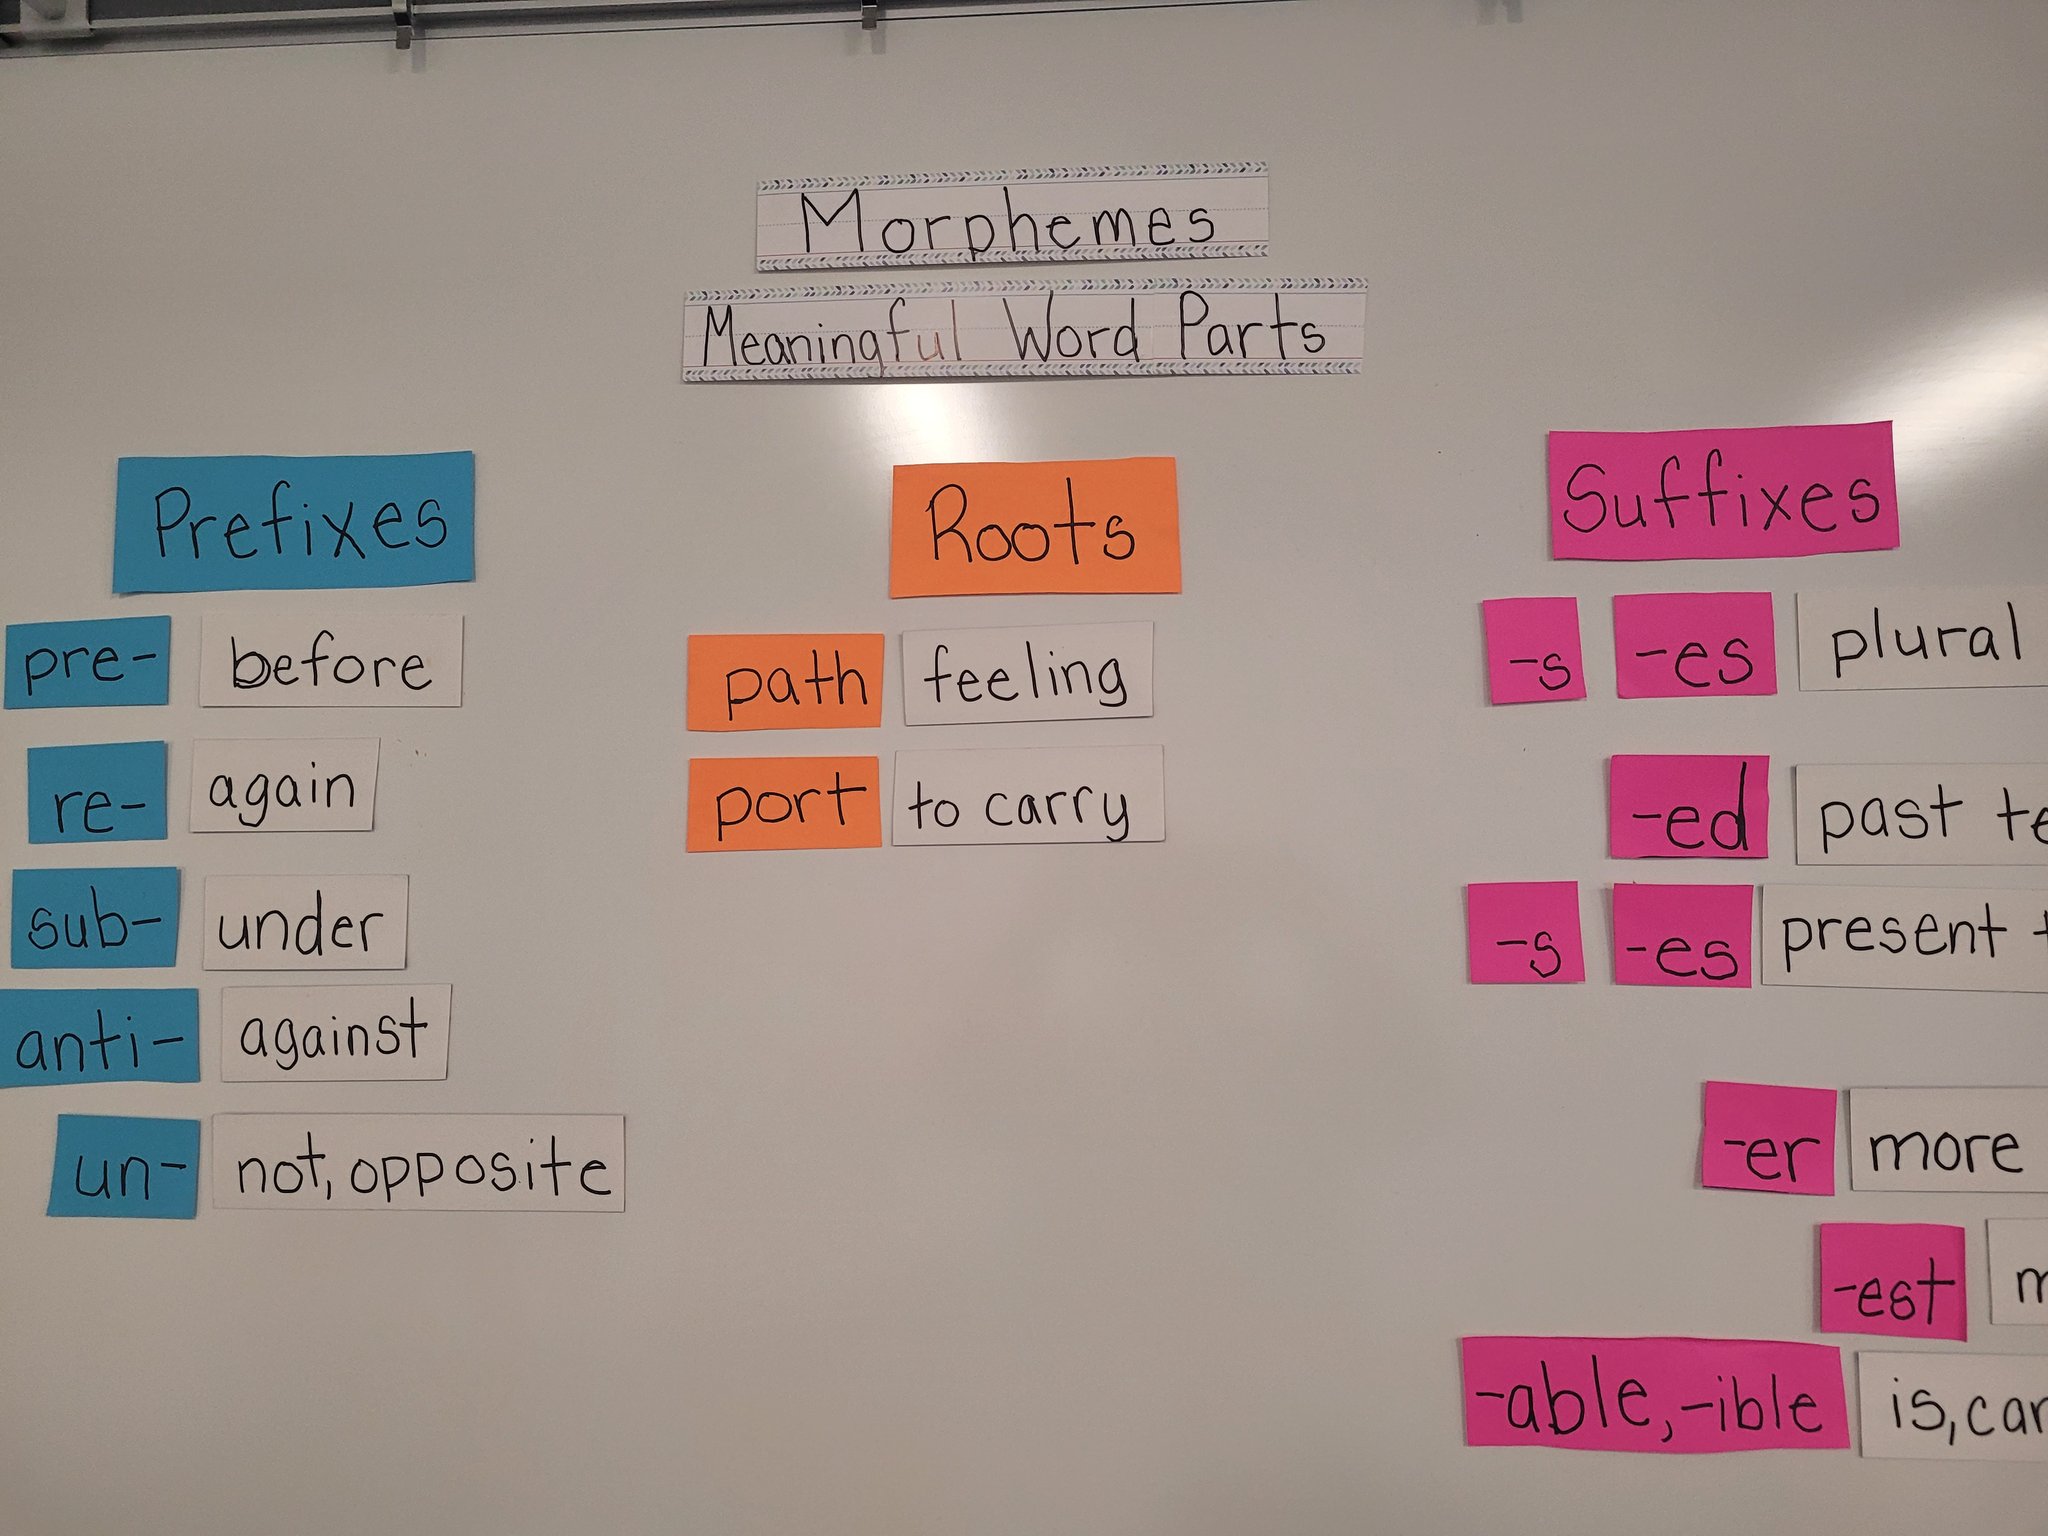 Morphemes
Meaningful Word Parts
Prefixes
pre- before
re- again
sub- under
anti- against
un- not, opposite
Roots
path feeling
port to carry
Suffixes
-s -es plural
-ed past
-s -es present
-er more
-est
-able, -ible is,